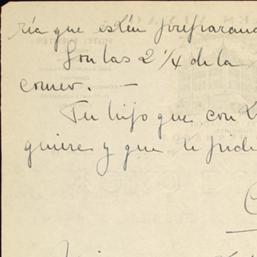 ría que estén preparand
Son las 2 1/4 de la
comer. —
Tu hijo que con
quiere y que te pide